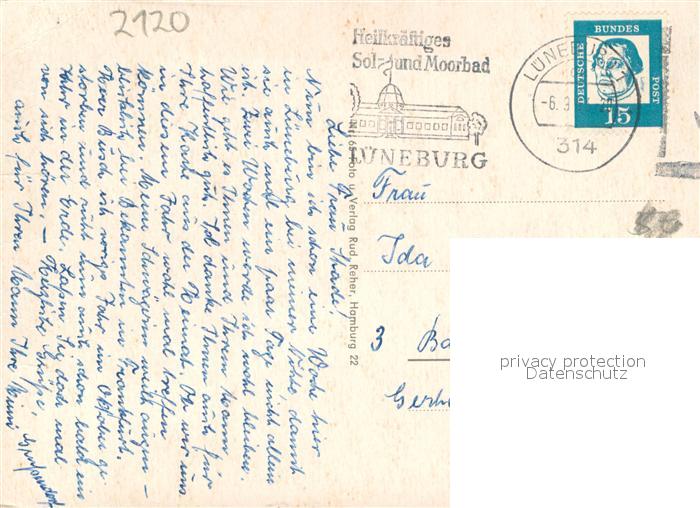 2120
Heilkräftiges
Sol- und Moorbad
LÜNEBURG
LÜNEBURG
-6.9
314
DEUTSCHE
BUNDES
POST
15
Liebe Frau
Nun bin ich schon eine Woche hier
in Lüneburg bei meiner Nichte, damit
sie auch mal ein paar Tage nicht allein
ist. Zwei Wochen werde ich wohl bleiben.
Wie geht es Ihnen und Ihrem Mann
hoffentlich gut. Ich danke Ihnen auch für
Ihre Karte aus der Heimat. Ob wir uns
in diesem Jahr wohl mal treffen
können. Meine Schwägerin
bei Bekannten in Frankfurt.
Herr Busch ist vorige Jahr im Oktober ge-
storben und ruht nun auch schon bald ein
Jahr in der Erde. Lassen Sie doch mal
von sich hören. – Herzliche Grüße,
auch für Ihren Mann Ihre
Nr. 65 Foto u. Verlag Rud. Reher, Hamburg 22
Frau
Ida
3 Ba
Gerh
privacy protection
Datenschutz